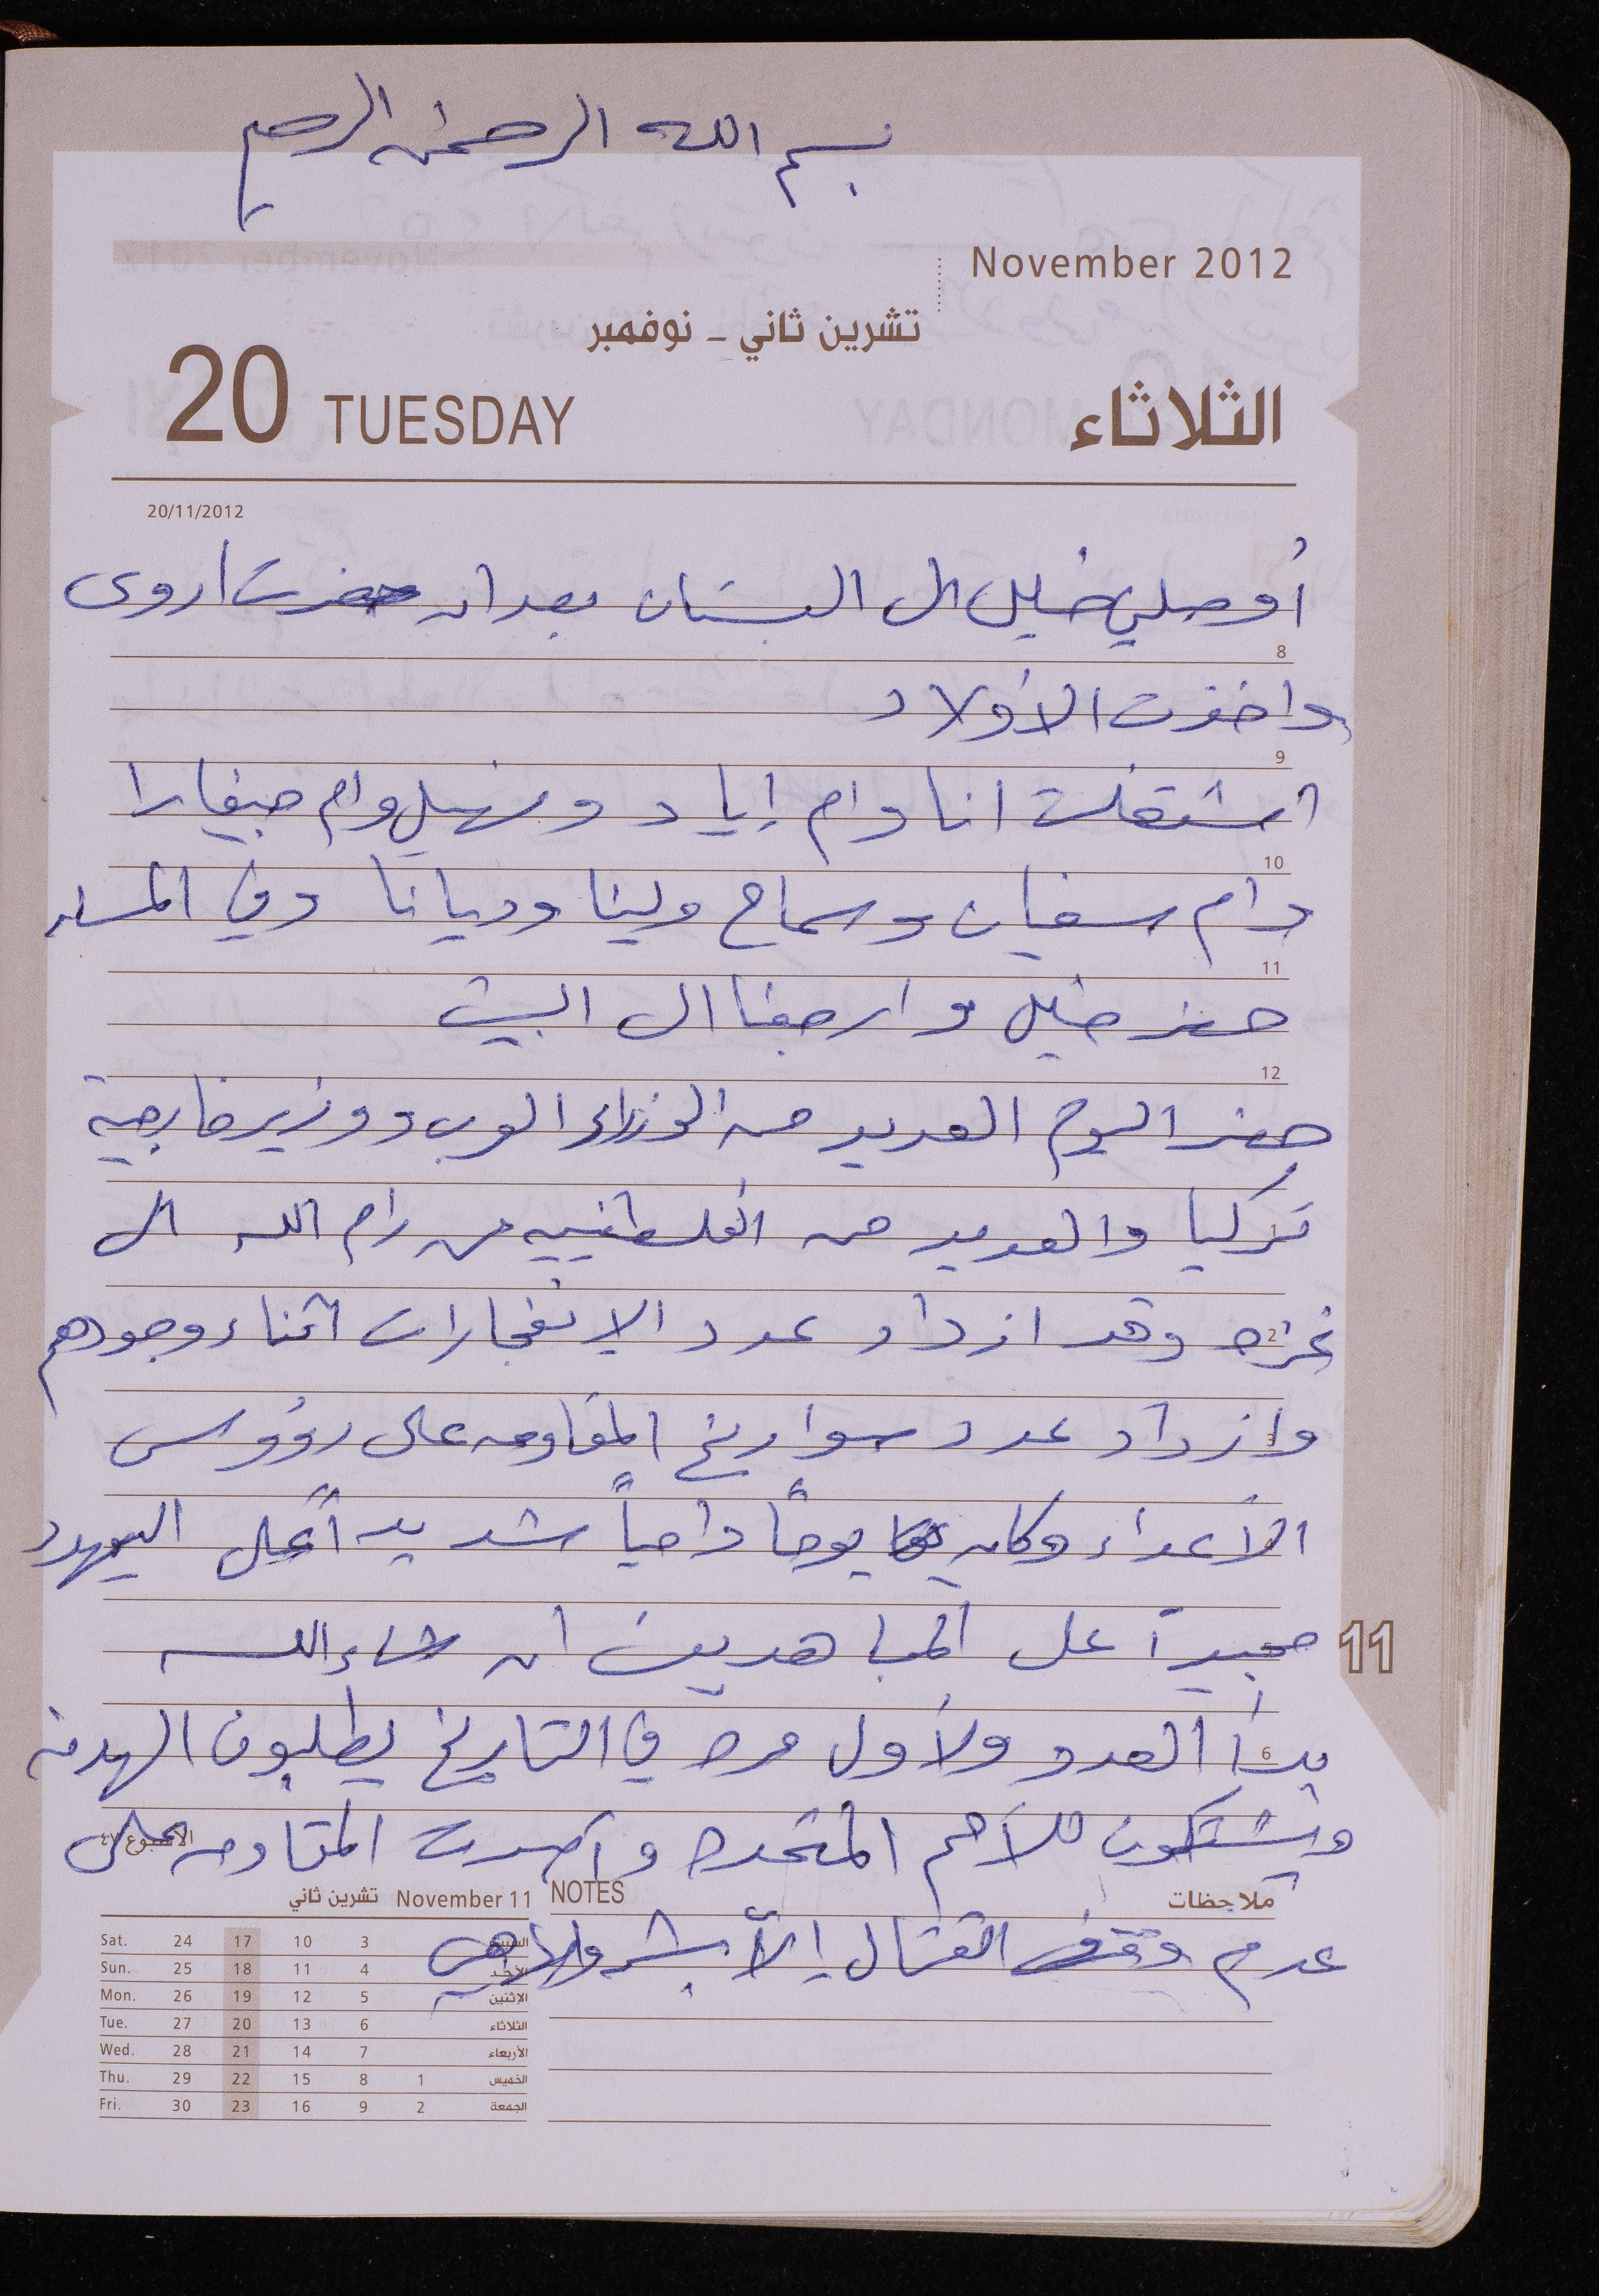 بسم الله الرحمن الرحيم
November 2012
تشرين ثاني - نوفمبر
20 TUESDAY الثلاثاء
20/11/2012
أوصلني خليل الى البستان بعد ان حضرت اروى
8
واخذت الأولاد
9
اشتغلت انا وام إياد و سهيل وام جيفارا
10
وام سفيان وسماح ولينا وديانا وفي المساء
11
حضر خليل وارجعنا الى البيت
12
حضر اليوم العديد من الوزراء العرب و وزير خارجية
1
تركيا والعديد من الفلسطينيين من رام الله الى
2
غزه وقد ازداد عدد الانفجارات أثناء وجودهم
3
وازداد عدد صواريخ المقاومه على رؤوس
الأعداء وكان يوماً دامياً شديداً على اليهود
مجيداً على المجاهدين ان شاء الله
11
6
بدأ العدو ولأول مره في التاريخ يطلبون الهدنه
ويشتكون للأمم المتحده وأصرت المقاومه على
الأسبوع ٤٧
ملاحظات NOTES
November 11 تشرين ثاني
عدم وقف القتال إلاّ بشروط
Sat. 24 17 10 3 السبت
Sun. 25 18 11 4 الأحد
Mon. 26 19 12 5 الإثنين
Tue. 27 20 13 6 الثلاثاء
Wed. 28 21 14 7 الأربعاء
Thu. 29 22 15 8 1 الخميس
Fri. 30 23 16 9 2 الجمعة